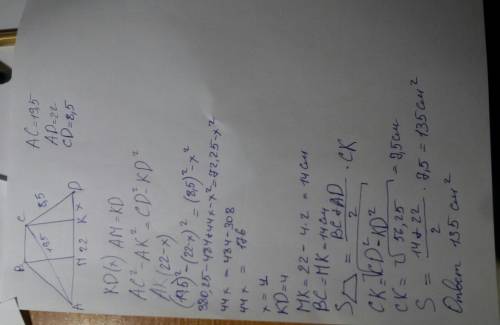 AC=19,5
AD=22
CD=8,5
B
C
19,5
8,5
A
M
22
K
x
D
KD(x) AM=KD
AC²-AK²=CD²-KD²
AK(22-x)
(19,5)²-(22-x)²=(8,5)²-x²
380,25-484+44x-x²=72,25-x²
44x=484-308
44x=176
x=4
KD=4
MK=22-4·2=14см
BC=MK=14см
S=BC+AD/2·CK
CK=√CD²-KD²
CK=√56,25=7,5см
S=14+22/2·7,5=135см²
Ответ 135см²